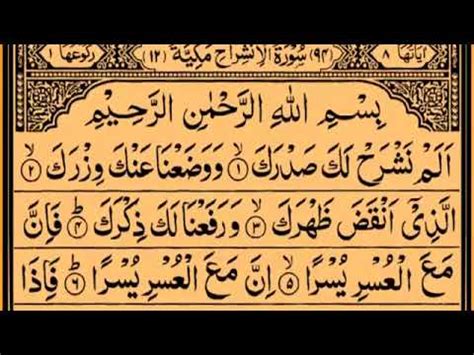 اٰيَاتُهَا ٨ (٩٤) سُوْرَةُ الْاِنْشِرَاحِ مَكِّيَّةٌ (١٢) رُكُوْعُهَا ١
بِسْمِ اللّٰهِ الرَّحْمٰنِ الرَّحِيْمِ
اَلَمْ نَشْرَحْ لَكَ صَدْرَكَ ۙ‏﴿۱﴾ وَوَضَعْنَا عَنْكَ وِزْرَكَ ۙ‏﴿۲﴾
الَّذِىْٓ اَنْقَضَ ظَهْرَكَ ۙ‏﴿۳﴾ وَرَفَعْنَا لَكَ ذِكْرَكَ ؕ‏﴿۴﴾ فَاِنَّ
مَعَ الْعُسْرِ يُسْرًا ۙ‏﴿۵﴾ اِنَّ مَعَ الْعُسْرِ يُسْرًا ؕ‏﴿۶﴾ فَاِذَا